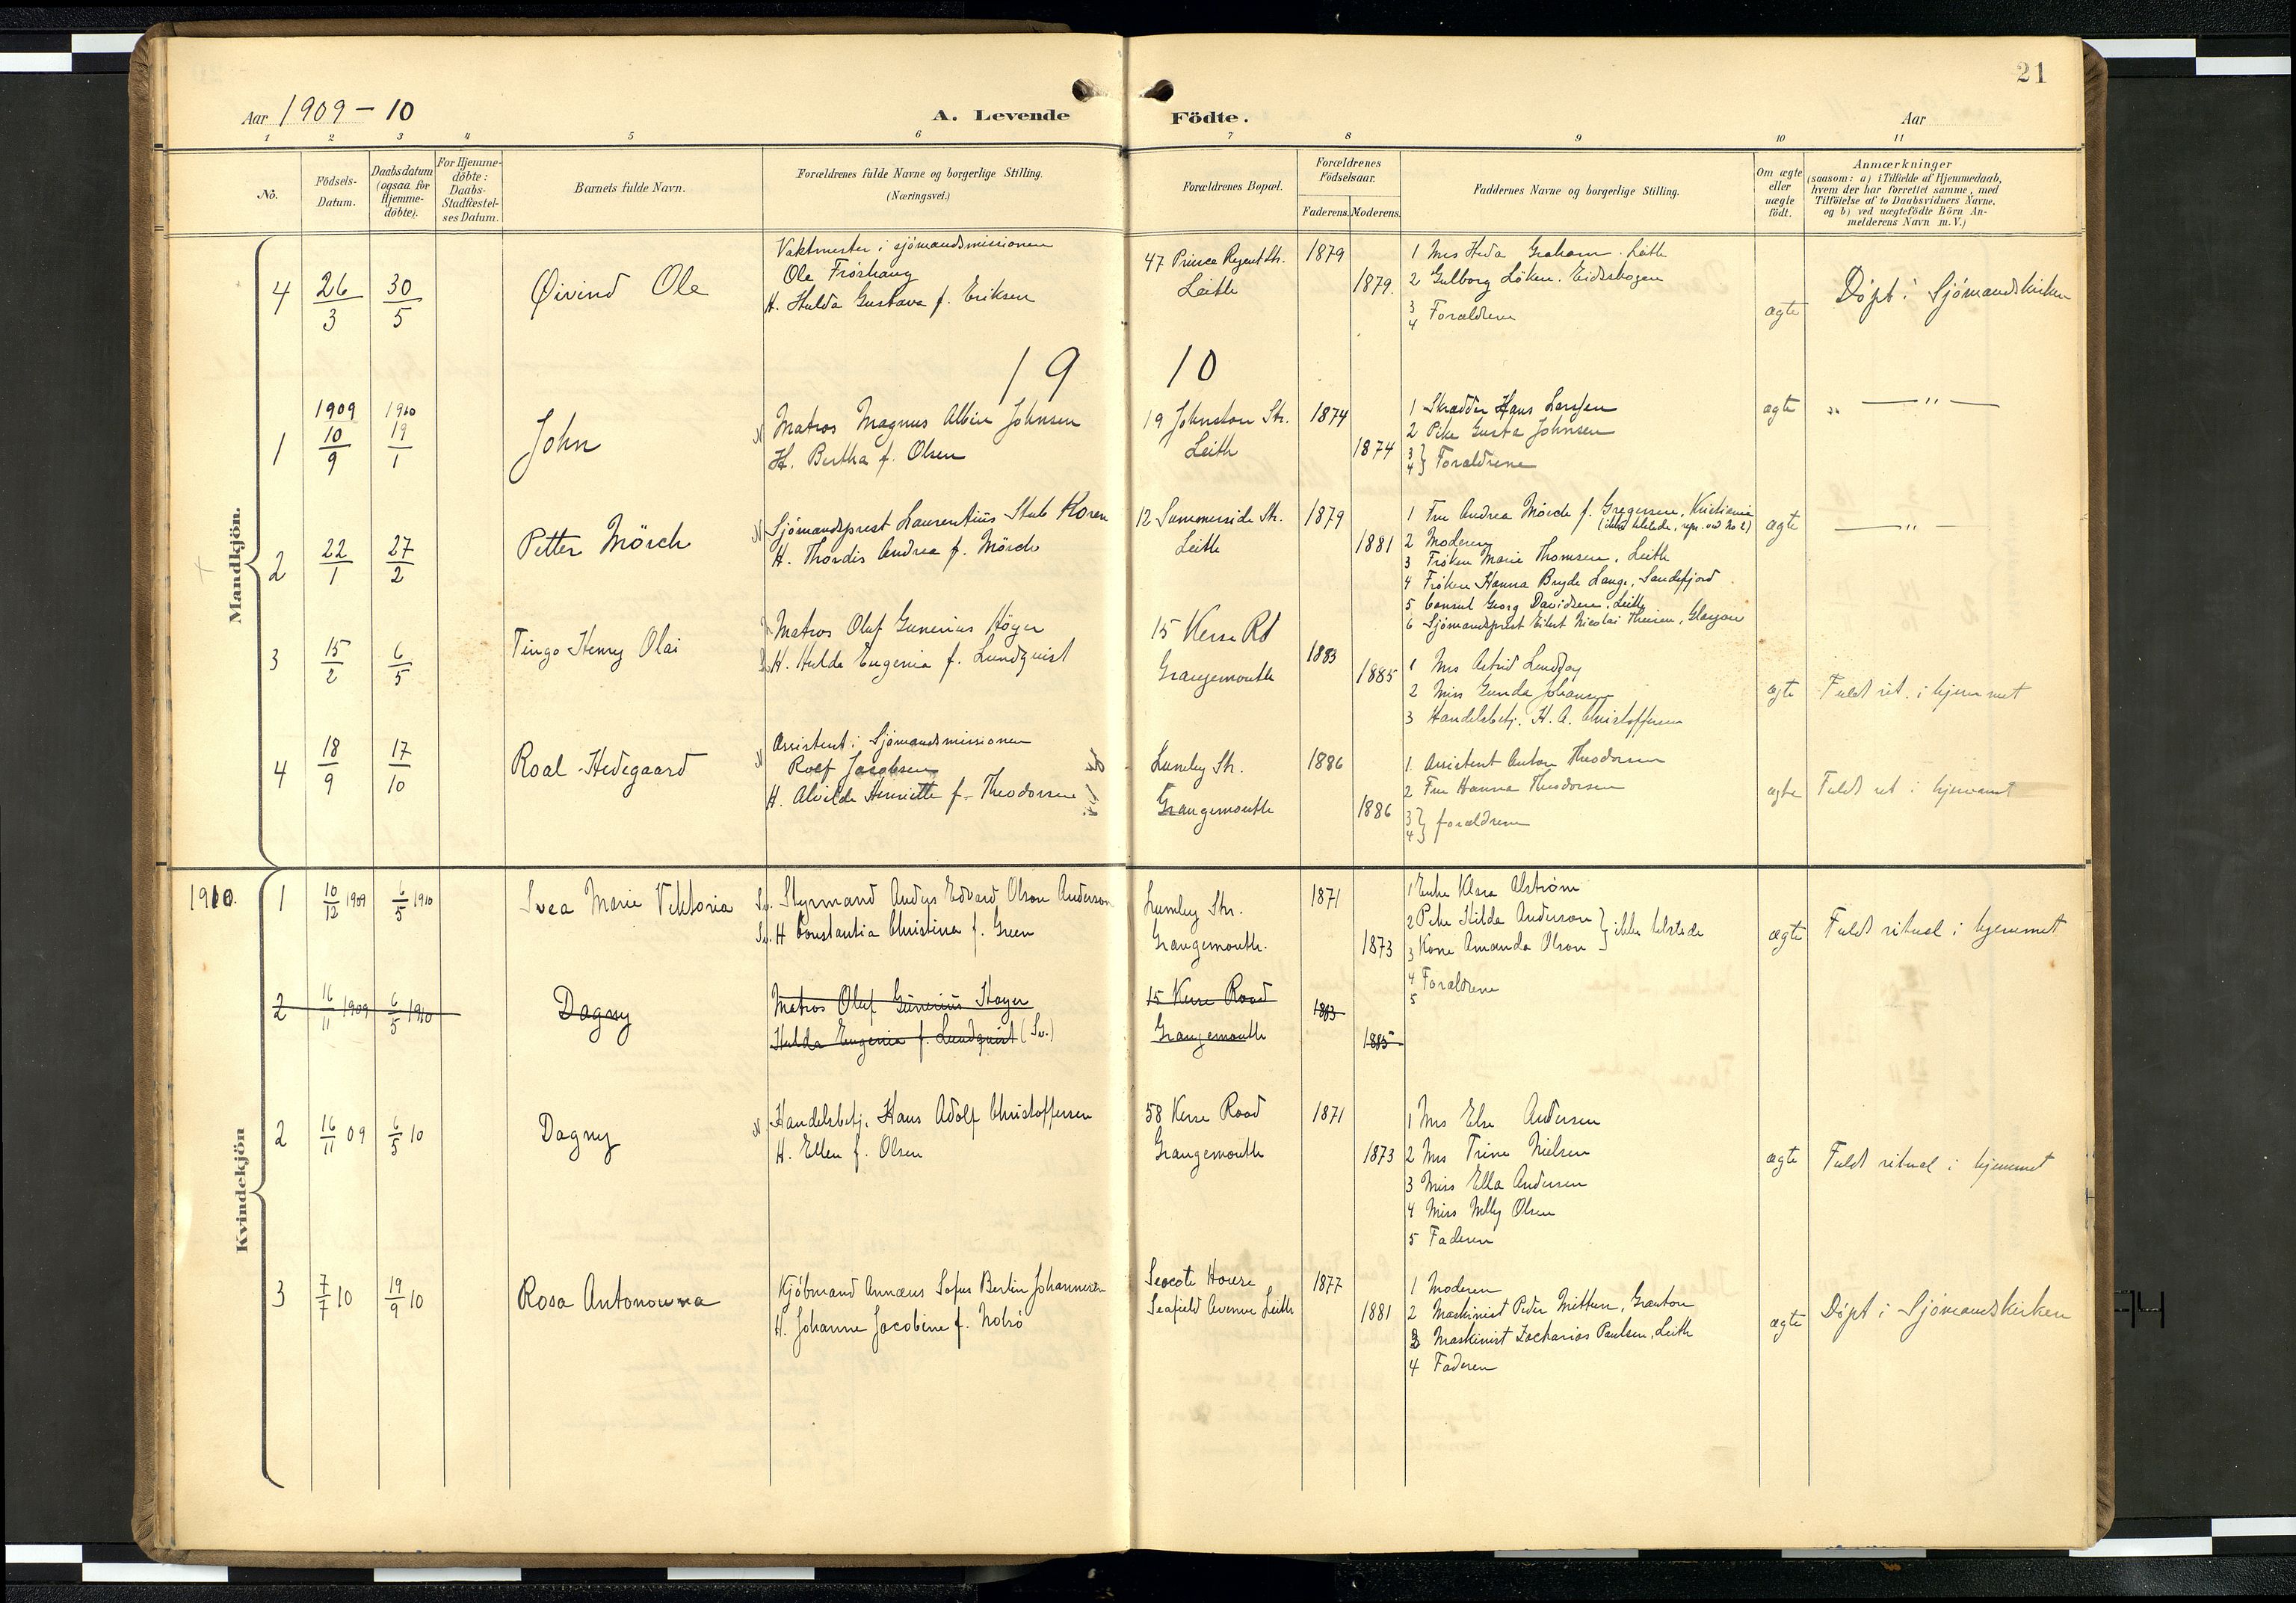 21
Aar 1909 - 10
A. Levende Födte.
Aar
1 2 3 4 5 6 7 8 9 10 11
No.
Födsels-Datum.
Daabsdatum (ogsaa for Hjemme-döbte).
For Hjemme-döbte: Daabs-Stadfæstel-ses Datum.
Barnets fulde Navn.
Forældrenes fulde Navne og borgerlige Stilling.
(Næringsvei.)
Forældrenes Bopæl.
Forældrenes Födselsaar.
Faderens. Moderens.
Faddernes Navne og borgerlige Stilling.
Om ægte eller uægte födt.
Anmærkninger
(saasom: a) i Tilfælde af Hjemmedaab,
hvem der har forrettet samme, med
Tilföielse af to Daabsvidners Navne.
og b) ved uægtefödte Börn An-
melderens Navn m. V.)
Mandkjön.
4 26/3 30/5 Øivind Ole
Vaktmester i sjömandsmissionen
Ole Fröshaug
H. Hulda Gustava f. Eriksen
47 Prince Regent Str.
Leith
1879
1879.
1 Mrs Heda Graham. Leith
2 Gulborg Löken. Eidskogen
3
4 Forældrene
ægte
Döpt i Sjömandskirken
19 10
1 1909 10/9 1910 19/1 John
N Matros Magnus Albin Johnsen
H. Bertha f. Olsen
19 Johnston Str.
Leith
1874
1874
1 Skrædder Hans Larssen
2 Pike Gusta Johnsen
3
4 } Forældrene
ægte
" — " —
2 22/1 27/2 Petter Mörch
N Sjömandsprest Laurentius Stub Koren
H. Thordis Andrea f. Mörch
12 Summerside Str.
Leith
1879
1881
1 Fru Andrea Mörch f. Gregersen, Kristiania
(ikke tilstede, repr. ved No 2)
2 Moderen
3 Fröken Marie Thomsen, Leith
4 Fröken Hanna Bryde Lange, Sandefjord
5 Consul Georg Davidsen, Leith
6 Sjömandsprest Eilert Nicolai Theisen, Glasgow
ægte
— " —
3 15/2 6/5 Tingo Henry Olai
Matros Oluf Gunerius Höyer
H. Hulda Eugenia f. Lundquist
15 Kerse Rd
Grangemouth
1883
1885
1 Mrs Astrid Lendsay
2 Miss Gunda Johansen
3 Handelsbetj. H. A. Christoffersen
ægte
Fuldt rit. i hjemmet
4 18/9 17/10 Roal Hedegaard
N Assistent i Sjömandsmissionen
Rolf Jacobsen
H. Alvilde Henriette f. Theodorsen
Lumley Str.
Grangemouth
1886
1886
1. Assistent Anton Theodorsen
2 Fru Hanna Theodorsen
3
4 } forældrene
ægte
Fuldt rit i hjemmet
Kvindekjön
1910.
1 10/12 1909 6/5 1910 Svea Marie Viktoria
Sv. Styrmand Anders Edvard Olson Anderson
Sv. H Constantia Christina f. Green
Lumley Str.
Grangemouth.
1871
1873
1 Enke Klara Alström
2 Pike Hilda Anderson
3 Kone Amanda Olson } ikke tilstede
4 Forældrene
5
ægte
Fuldt ritual i hjemmet
2 16/11 1909 6/5 1910 Dagny
Matros Oluf Gunerius Höyer
Hulda Eugenia f. Lundquist (Sv.)
15 Kerse Road
Grangemouth
1883
1885
2 16/11 09 6/5 10 Dagny
N Handelsbetj. Hans Adolf Christoffersen
H. Ellen f. Olsen
58 Kerse Road
Grangemouth
1871
1873
1 Mrs Else Andersen
2 Mrs Trine Nielsen
3 Miss Ella Andersen
4 Miss Nelly Olsen
5 Faderen
ægte
Fuldt ritual i hjemmet
3 7/7 10 19/9 10 Rosa Antonowna
Kjöbmand Annæus Sofus Berlin Johannesen
H. Johanne Jacobine f. Nolsö
Seacote House
Seafield Avenue Leith
1877
1881
1 Moderen
2 Maskinist Peder Mitten, Granton
3 Maskinist Zacharias Paulsen, Leith
4 Faderen
ægte
Döpt i Sjömandskirken